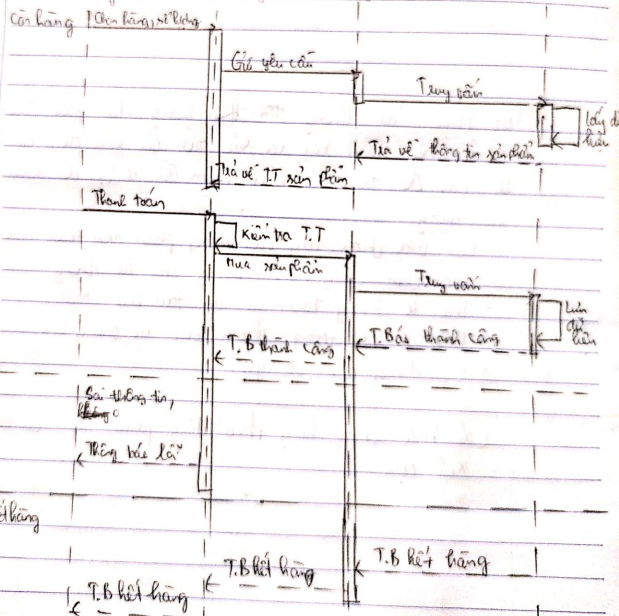 còn hàng
Chọn hàng, số lượng
Gửi yêu cầu
Truy vấn
lấy dữ
liệu
Trả về thông tin sản phẩm
Trả về T.T sản phẩm
Thanh toán
Kiểm tra T.T
Mua sản phẩm
Truy vấn
Lưu
dữ
liệu
T.B thành công
T.Báo thành công
Sai thông tin,
Thông báo lỗi
hàng
T.B hết hàng
T.B hết hàng
T.B hết hàng